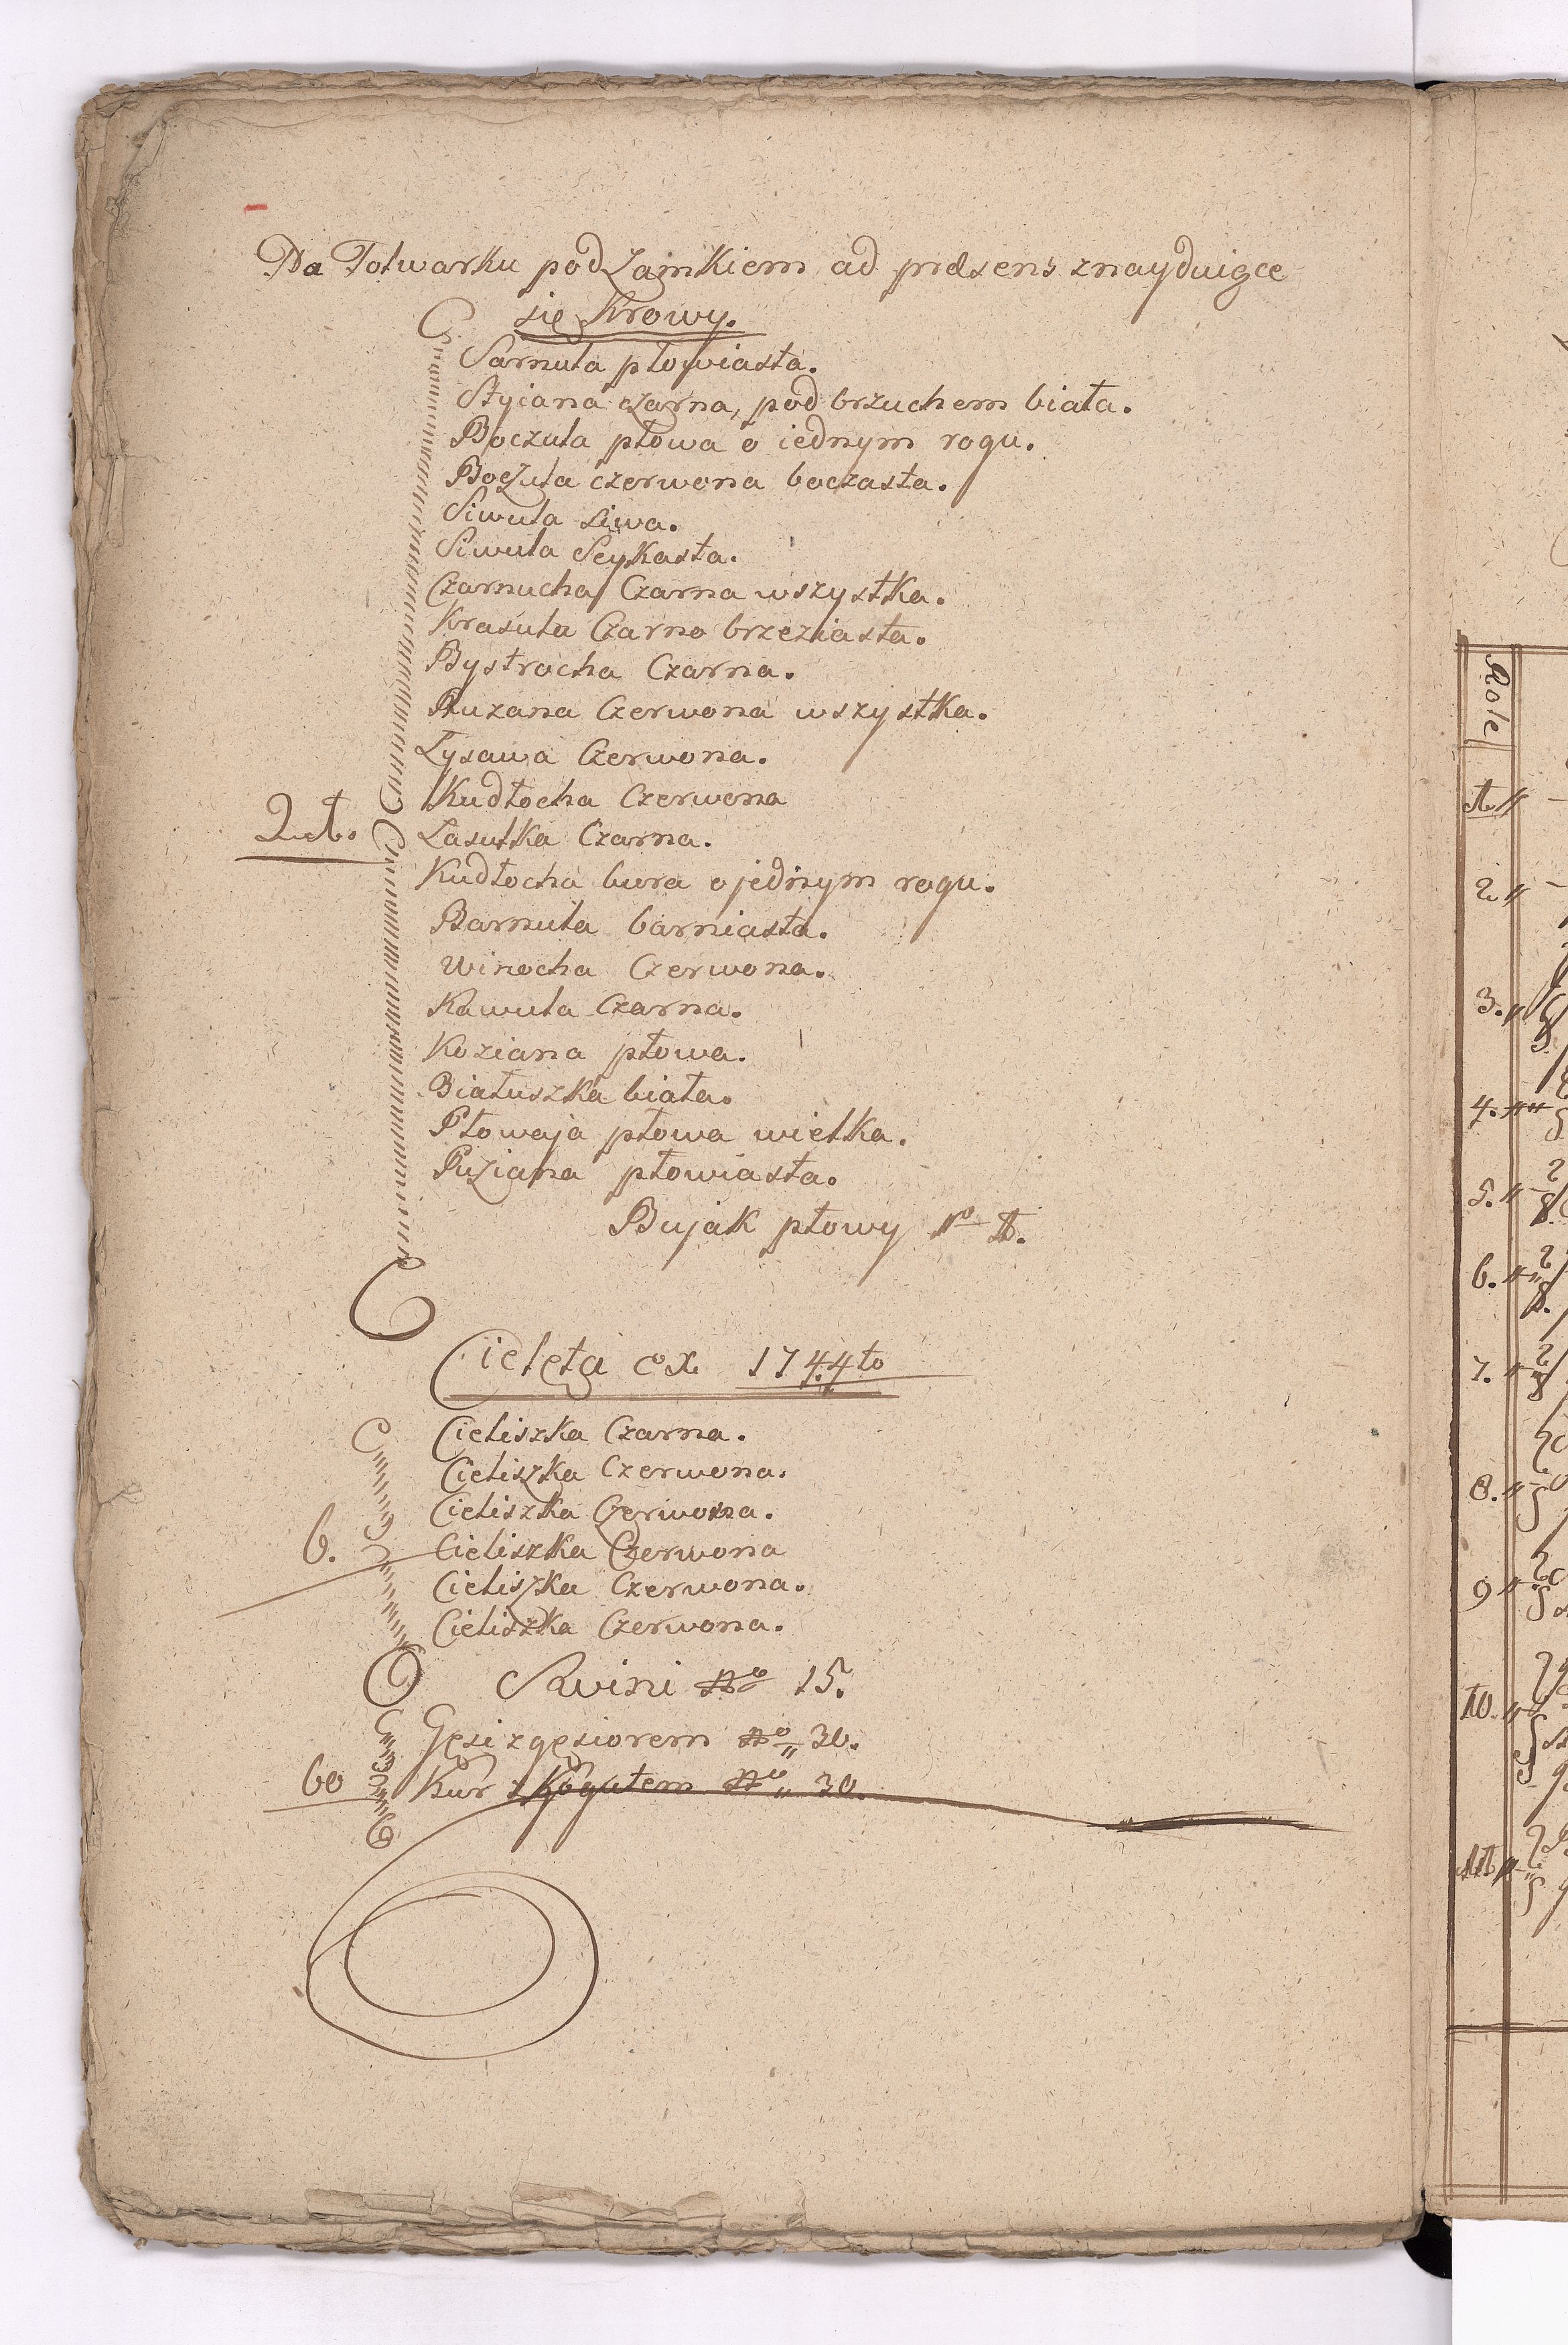 Na Folwarku pod Zamkiem ad præsens znayduiące
się Krowy.
Sarnula płowiasta.
Styiana czarna, pod brzuchem biała.
Boczula płowa o iednym rogu.
Boczula czerwona boczasta.
Siwula siwa.
Siwula Seykasta.
Czarnucha Czarna wszystka.
Krasula Czarno brzeziasta.
Bystrocha Czarna.
Ruzana Czerwona wszystka.
Łysawa Czerwona.
Kudłocha Czerwona
21. Lasulka Czarna.
Kudłocha bura o jednym rogu.
Barnula barniasta.
Winocha Czerwona.
Kawula Czarna.
Koziana płowa.
Białuszka biała.
Płowaja płowa wielka.
Puziana płowiasta.
Bujak płowy No 1.
Cielęta ex 1744to
Cieliszka Czarna.
Cieliszka Czerwona.
Cieliszka Czerwona.
6. Cieliszka Czerwona
Cieliszka Czerwona.
Cieliszka Czerwona.
Swini No 15.
Gęsi z gęsiorem No 30.
60 Kur z Kogutem No 30.
Role
1.
2.
3.
4.
5.
6.
7.
8.
9
10.
11